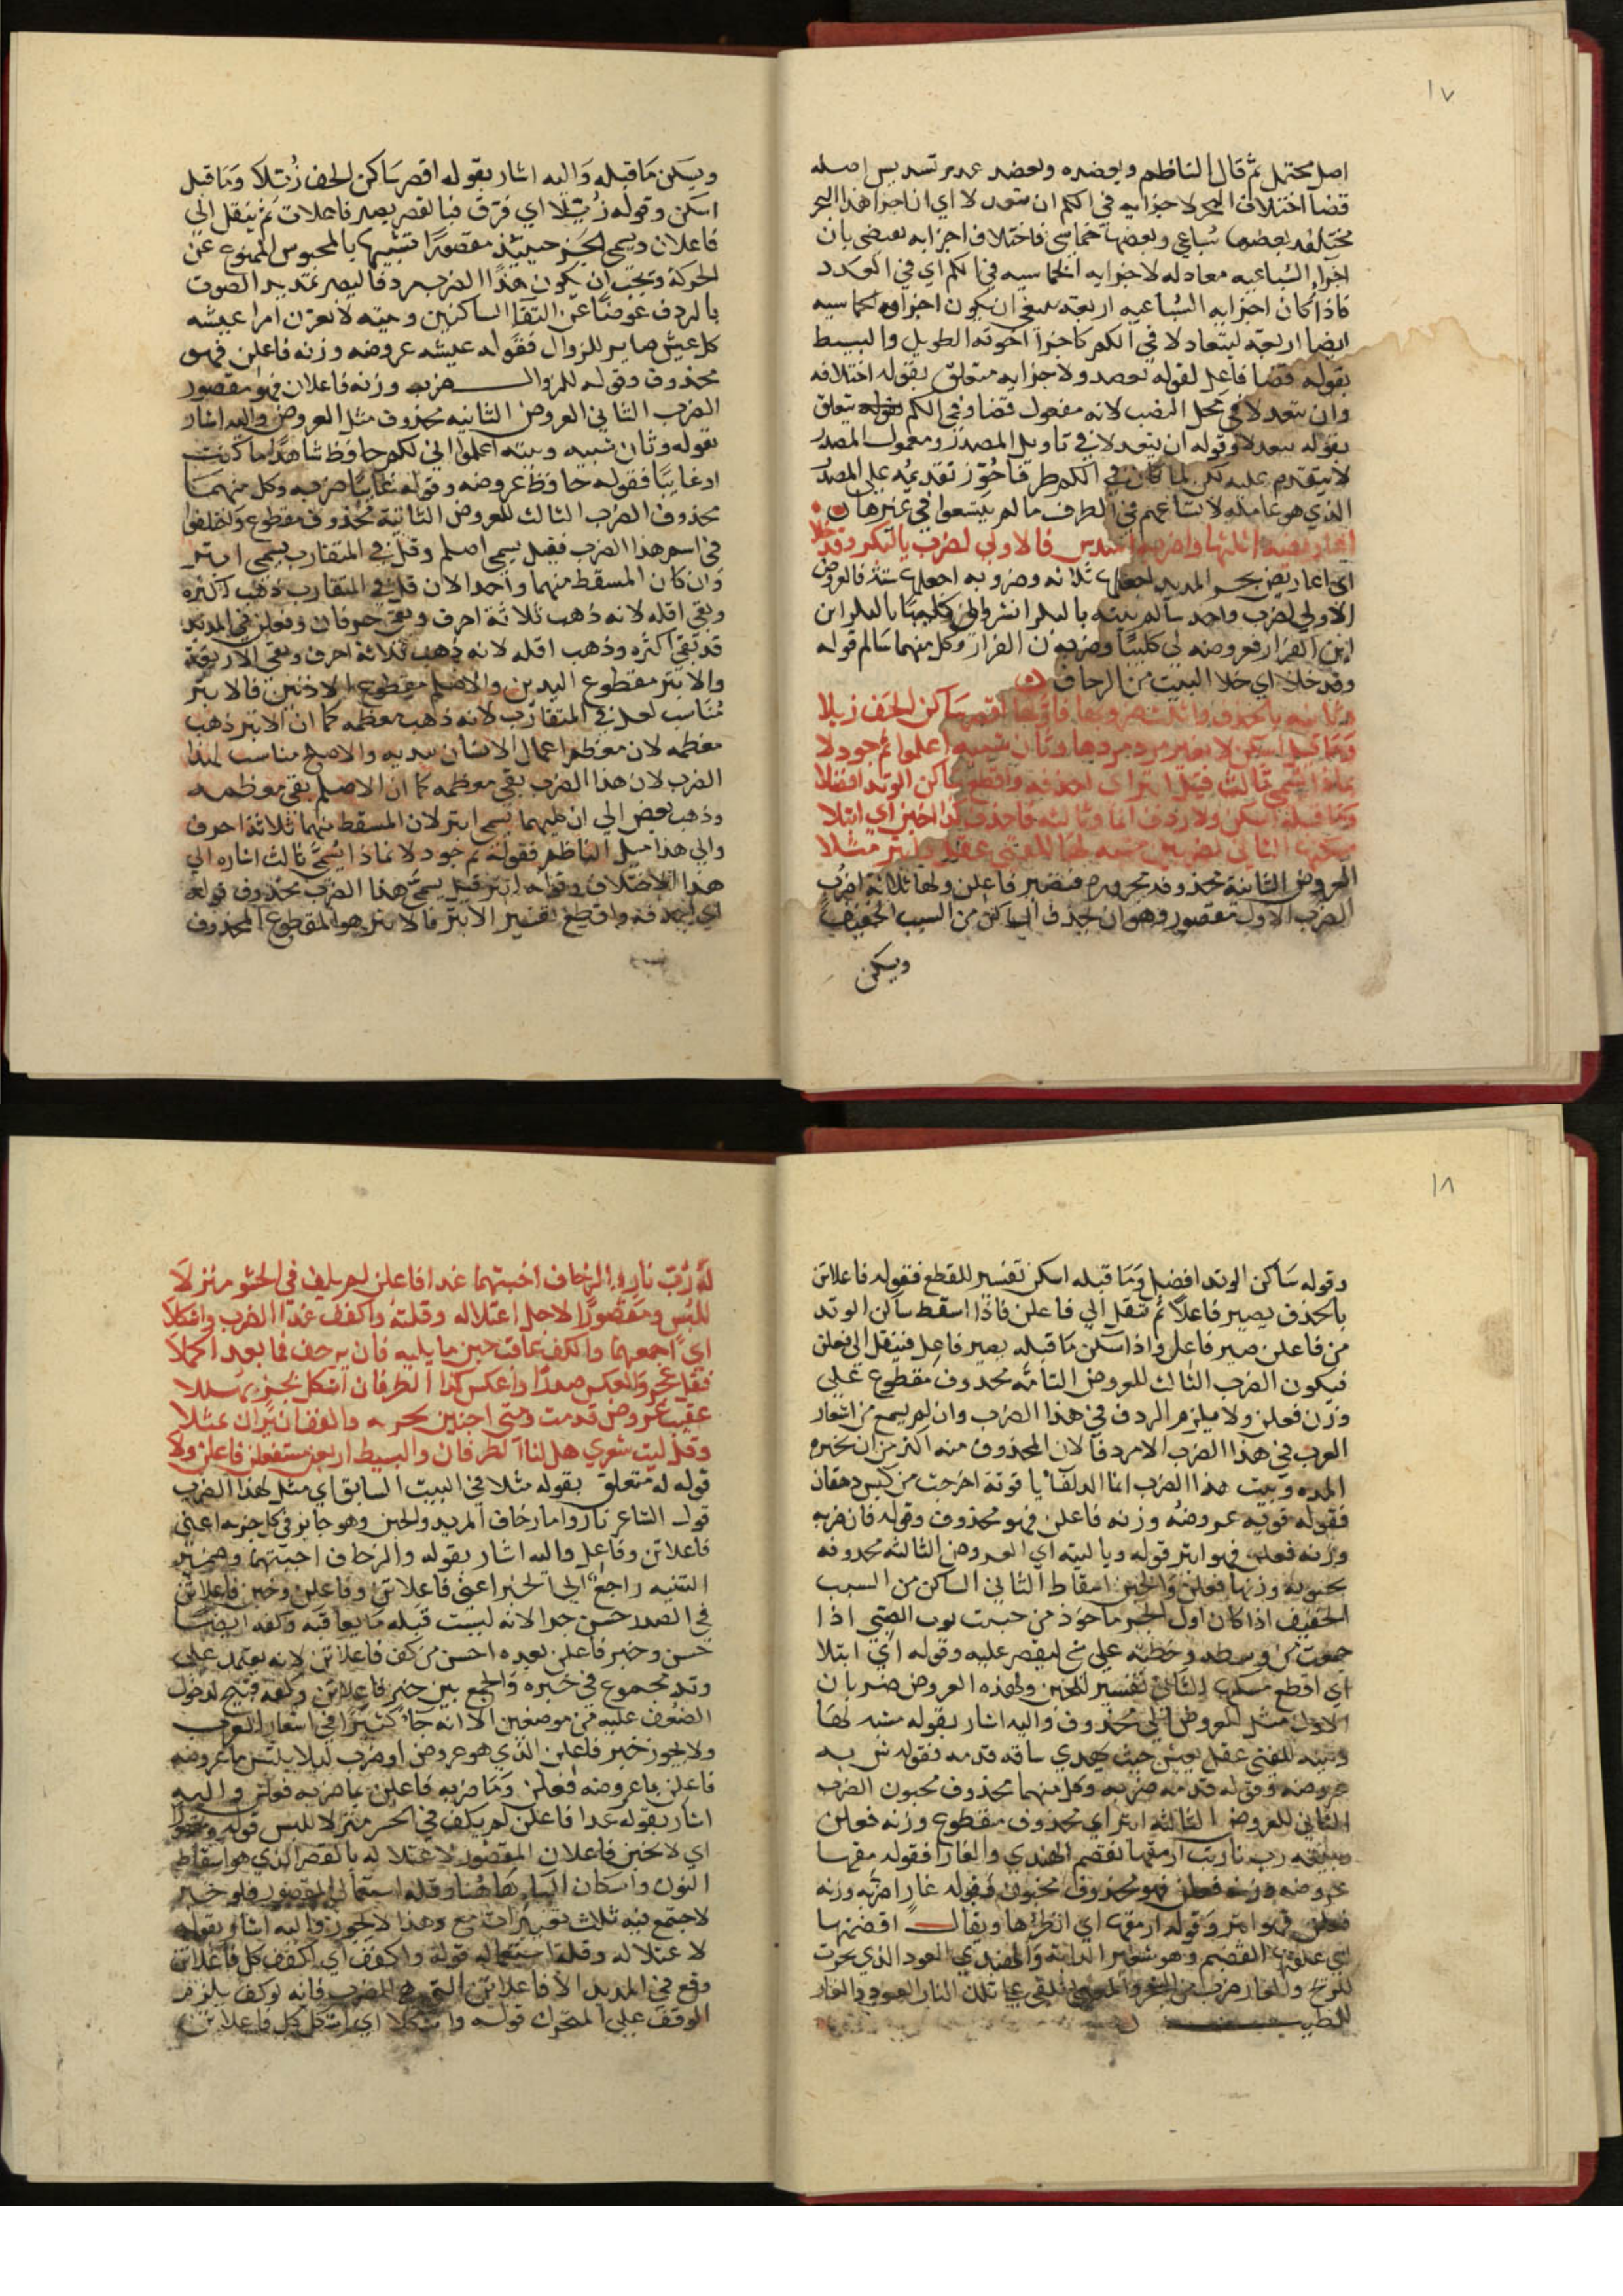 ١٧
اصل محتمل ثم قال الناظم ويعضده وبعضد عدم تسديس اصله
قضا اختلاف البحر لاجزايه في الكم ان تعدلا اي ان اجزا هذا البحر
مختلفة بعضها سباعي وبعضها خماسي فاختلاف اجزايه يقضي بان
اجزاه السباعيه معادله لاجزايه الخماسيه في الكم اي في العدد
فاذا كان اجزايه السباعيه اربعة ينبغي ان يكون اجزاوه الخماسيه
ايضا اربعة ليتعادلا في الكم كاجزا اخوته الطويل والبسيط
بقوله قضا فاعل لقوله يعضد ولاجزايه متعلق بقوله اختلافه
وان يتعدلا في محل النصب لانه مفعول قضا وفي الكم يتعلق
بقوله يتعدلا وقوله ان يتعدلا في تاويل المصدر ومعمول المصدر
لا يتقدم عليه لكن لما كان في الكم ظرفا جوز تقديمه على المصدر
الذي هو عامله لاتساعهم في الظرف ما لم يتسعوا في غيرها
فالاولى لضرب يالبكر وقد خلا
اي اعاريض بحر المديد اجعلها ثلاثة وضروبه اجعلها ستة فالعروض
الاولى لضرب واحد سالم بيته يالبكر انشروا لي كليبا يالبكر اين
اين الفرار فعروضه لي كليبا وضربه ن الفرار وكل منهما سالم قوله
وقد خلا اي خلا البيت من الزحاف
وثانيه بالحذف وثلث ضروبها فاولها اقصر ساكن الخف زيلا
وما قبل اسكن لا يغير مرد مردها وثان شبيه اعلموا ثم جود لا
بماذا يسمى ثالث قيل ابتر اي احذفه واقطع ساكن الوتد افضلا
وما قبله اسكن ولا ردف اما وثالثه فاحذف كذا اخبن اي ابتلا
مسكن الثاني لضربين مشبه لها للفتى عقل وابتر مثلا
العروض الثانية محذوفة مجزوه فتصير فاعلن ولها ثلاثة اضرب
الضرب الاول مقصور وهو ان يحذف الساكن من السبب الخفيف
ويسكن
ويسكن ما قبله واليه اشار بقوله اقصر ساكن الخف زيلا وما قبل
اسكن وقوله زيلا اي فرق فبالقصر يصير فاعلات ثم ينقل الى
فاعلان ويسمى الجز حينئذ مقصورا تشبيها بالمحبوس الممنوع عن
الحركة ويجب ان يكون هذا الضرب مردفا ليصير تمديد الصوت
بالردف عوضا عن التقا الساكنين وبيته لا يغرن امرا عيشه
كل عيش صاير للزوال فقوله عيشه عروضه وزنه فاعلن فهو
محذوف وقوله للزوال ضربه وزنه فاعلان فهو مقصور
الضرب الثاني العروض الثانيه محذوف مثل العروض واليه اشار
بقوله وثان شبيه وبيته اعلموا اني لكم حافظ شاهدا ما كنت
او غايبا فقوله حافظ عروضه وقوله غايبا ضربه وكل منهما
محذوف الضرب الثالث للعروض الثانية محذوف مقطوع واختلفوا
في اسم هذا الضرب فقيل يسمى اصلم وقيل في المتقارب يسمى ابتر
وان كان المسقط منهما واحدا لان فل في المتقارب ذهب اكثره
وبقي اقله لانه ذهب ثلاثة احرف وبقي حرفان وفعلن في المديد
قد بقي اكثره وذهب اقله لانه ذهب ثلاثة احرف وبقي الاربعة
والابتر مقطوع اليدين والاصلم مقطوع الاذنين فالابتر
مناسب لعل في المتقارب لانه ذهب معظمه كما ان الابتر ذهب
معظمه لان معظم اعمال الانسان بيديه والاصلم مناسب لهذا
الضرب لان هذا الضرب بقي معظمه كما ان الاصلم بقي معظمه
وذهب بعض الى ان كليهما يسمى ابتر لان المسقط منهما ثلاثة احرف
والى هذا ميل الناظم فقوله ثم جود لا بماذا يسمى ثالث اشارة الى
هذا الاختلاف وقوله ابتر قيل يسمى هذا الضرب محذوف قوله
اي احذفه واقطع تفسير الابتر فالابتر هو المقطوع المحذوف
١٨
وقوله ساكن الوتد افضلا وما قبله اسكن تفسير للقطع فقوله فاعلاتن
بالحذف يصير فاعلا ثم تنقل الى فاعلن فاذا اسقط ساكن الوتد
من فاعلن صير فاعل واذا سكن ما قبله يصير فاعل فتنقل الى فعلن
فيكون الضرب الثالث للعروض الثانيه محذوف مقطوع على
وزن فعلن ولا يلزم الردف في هذا الضرب وان لم يسمع من اشعار
العرب في هذا الضرب الا مردفا لان المحذوف منه اكثر من ان تخبره
المده وبيت هذا الضرب انما الذلفا ياقوتة اخرجت من كيس دهقان
فقوله قوتة عروضه وزنه فاعلن فهو محذوف وقوله قان ضربه
وزنه فعلن فهو ابتر قوله وثالثه اي العروض الثالثه محذوفه
مخبونه وزنها فعلن والخبن اسقاط الثاني الساكن من السبب
الخفيف اذا كان اول الجز ماخوذ من خبنت ثوب الصبي اذا
جمعت من وسطه وخطته على شي ليقصر عليه وقوله اي ابتلا
اي اقطع مسكن الثاني تفسير للخبن ولهذه العروض ضربان
الاول مثل العروض اي محذوف واليه اشار بقوله مشبه لها
وبيته للفتى عقل يعيش به حيث تهدي ساقه قدمه فقوله ش به
عروضه وقوله قدمه ضربه وكل منهما محذوف مخبون الضرب
الثاني للعروض الثالثه ابتر اي محذوف مقطوع وزنه فعلن
وبيته رب نار بت ارمقها تقضم الهندي والغارا فقوله مقها
عروضه وزنه فعلن فهو محذوف مخبون وقوله غارا ضربه وزنه
فعلن فهو ابتر وقوله ارمقها اي انظرها ويقال اقضمتها
اي علفتها القضم وهو شعير الدابة والهندي العود الذي يحرق
للريح والغار ضرب من الشجر والمعنى تلك النار العود والغار
للطيب
له رب نار والزحاف اخبنهما عدا فاعلن لم يلف في الحشو منزلا
للبس ومقصورا لاجل اعتلاله وقلته واكفف عدا الضرب واشكلا
اي اجمعهما والكف عاقب خبن ما يليه فان يزحف فما بعد اكملا
فقل عجز والعكس صدر واعكس كذا الطرفان اشكل بجز مسللا
عقيب عروض قدمت ومتى اخبنن بحر به والطرفان تراك مثلا
وقل ليت شعري هل لنا الطرفان والبسيط اربع مستفعلن فاعلن ولا
قوله له متعلق بقوله مثلا في البيت السابق اي مثل لهذا الضرب
قول الشاعر نار واما زحاف المديد والخبن وهو جايز في كل جزء اعني
فاعلاتن وفاعلن واليه اشار بقوله والزحاف اخبنهما وضمير
التثنيه راجع الى الجز اعني فاعلاتن وفاعلن وخبن فاعلاتن
في الصدر حسن جدا لانه ليست قبله ما يعاقبه وكفه ايضا
حسن وخبن فاعلن بعده احسن من كف فاعلاتن لانه يعتمد على
وتد مجموع في خبره والجمع بين خبن فاعلاتن وكفه قبيح لدخول
الضعف عليه من موضعين الا انه جا كثيرا في اشعار العرب
ولا يجوز خبن فاعلن الذي هو عروض او ضرب ليلا يلتبس ما عروضه
فاعلن بما عروضه فعلن وما ضربه فاعلن بما ضربه فعلن واليه
اشار بقوله عدا فاعلن لم يلف في الحشو منزلا للبس قوله ومقصورا
اي لا تخبن فاعلان المقصور لاعتلاله بالقصر الذي هو اسقاط
النون واسكان التا هاهنا وقلة استعمال المقصور فلو خبن
لاجتمع فيه ثلث تغييرات مع وهذا لا يجوز واليه اشار بقوله
لاعتلاله وقلة استعماله قوله واكفف اي اكفف كل فاعلاتن
وقع في المديد الا فاعلاتن التي هي الضرب فانه لو كف يلزم
الوقف على المتحرك قوله واشكلا اي اشكل كل فاعلاتن